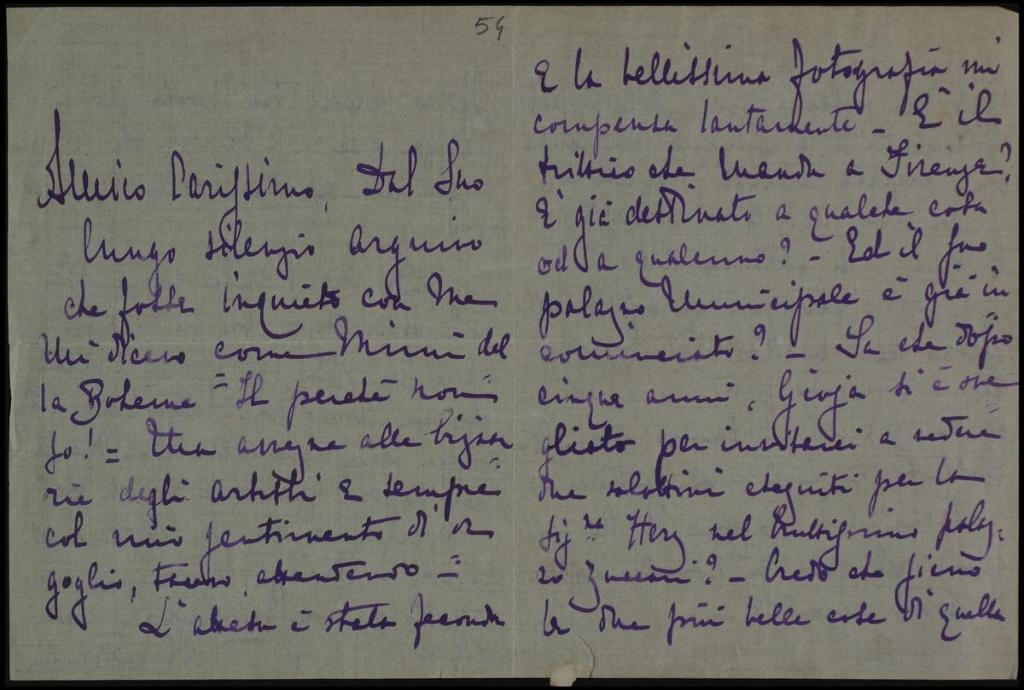 54
Amico Carissimo, Dal Suo
lungo silenzio arguivo
che fosse inquieto con me
Mi dicevo come Mimì del
la Boheme = Il perchè non
so! = Ma avvezza alle bizzar
rie degli artisti e sempre
col mio sentimento d'or
goglio, tacevo attendendo =
L'attesa è stata feconda
E la bellissima fotografia mi
compensa lautamente - È il
trittico che manda a Firenze?
È già destinato a qualche cosa
od a qualcuno? - Ed il suo
palazzo Municipale è già in
cominciato? - Sa che dopo
cinque anni, Gioja si è sve
gliato per invitarci a vedere
due salottini eseguiti per la
Sig.na Herz nel bruttissimo palaz:
zo Zuccari? - Credo che sieno
le due più belle cose di quella